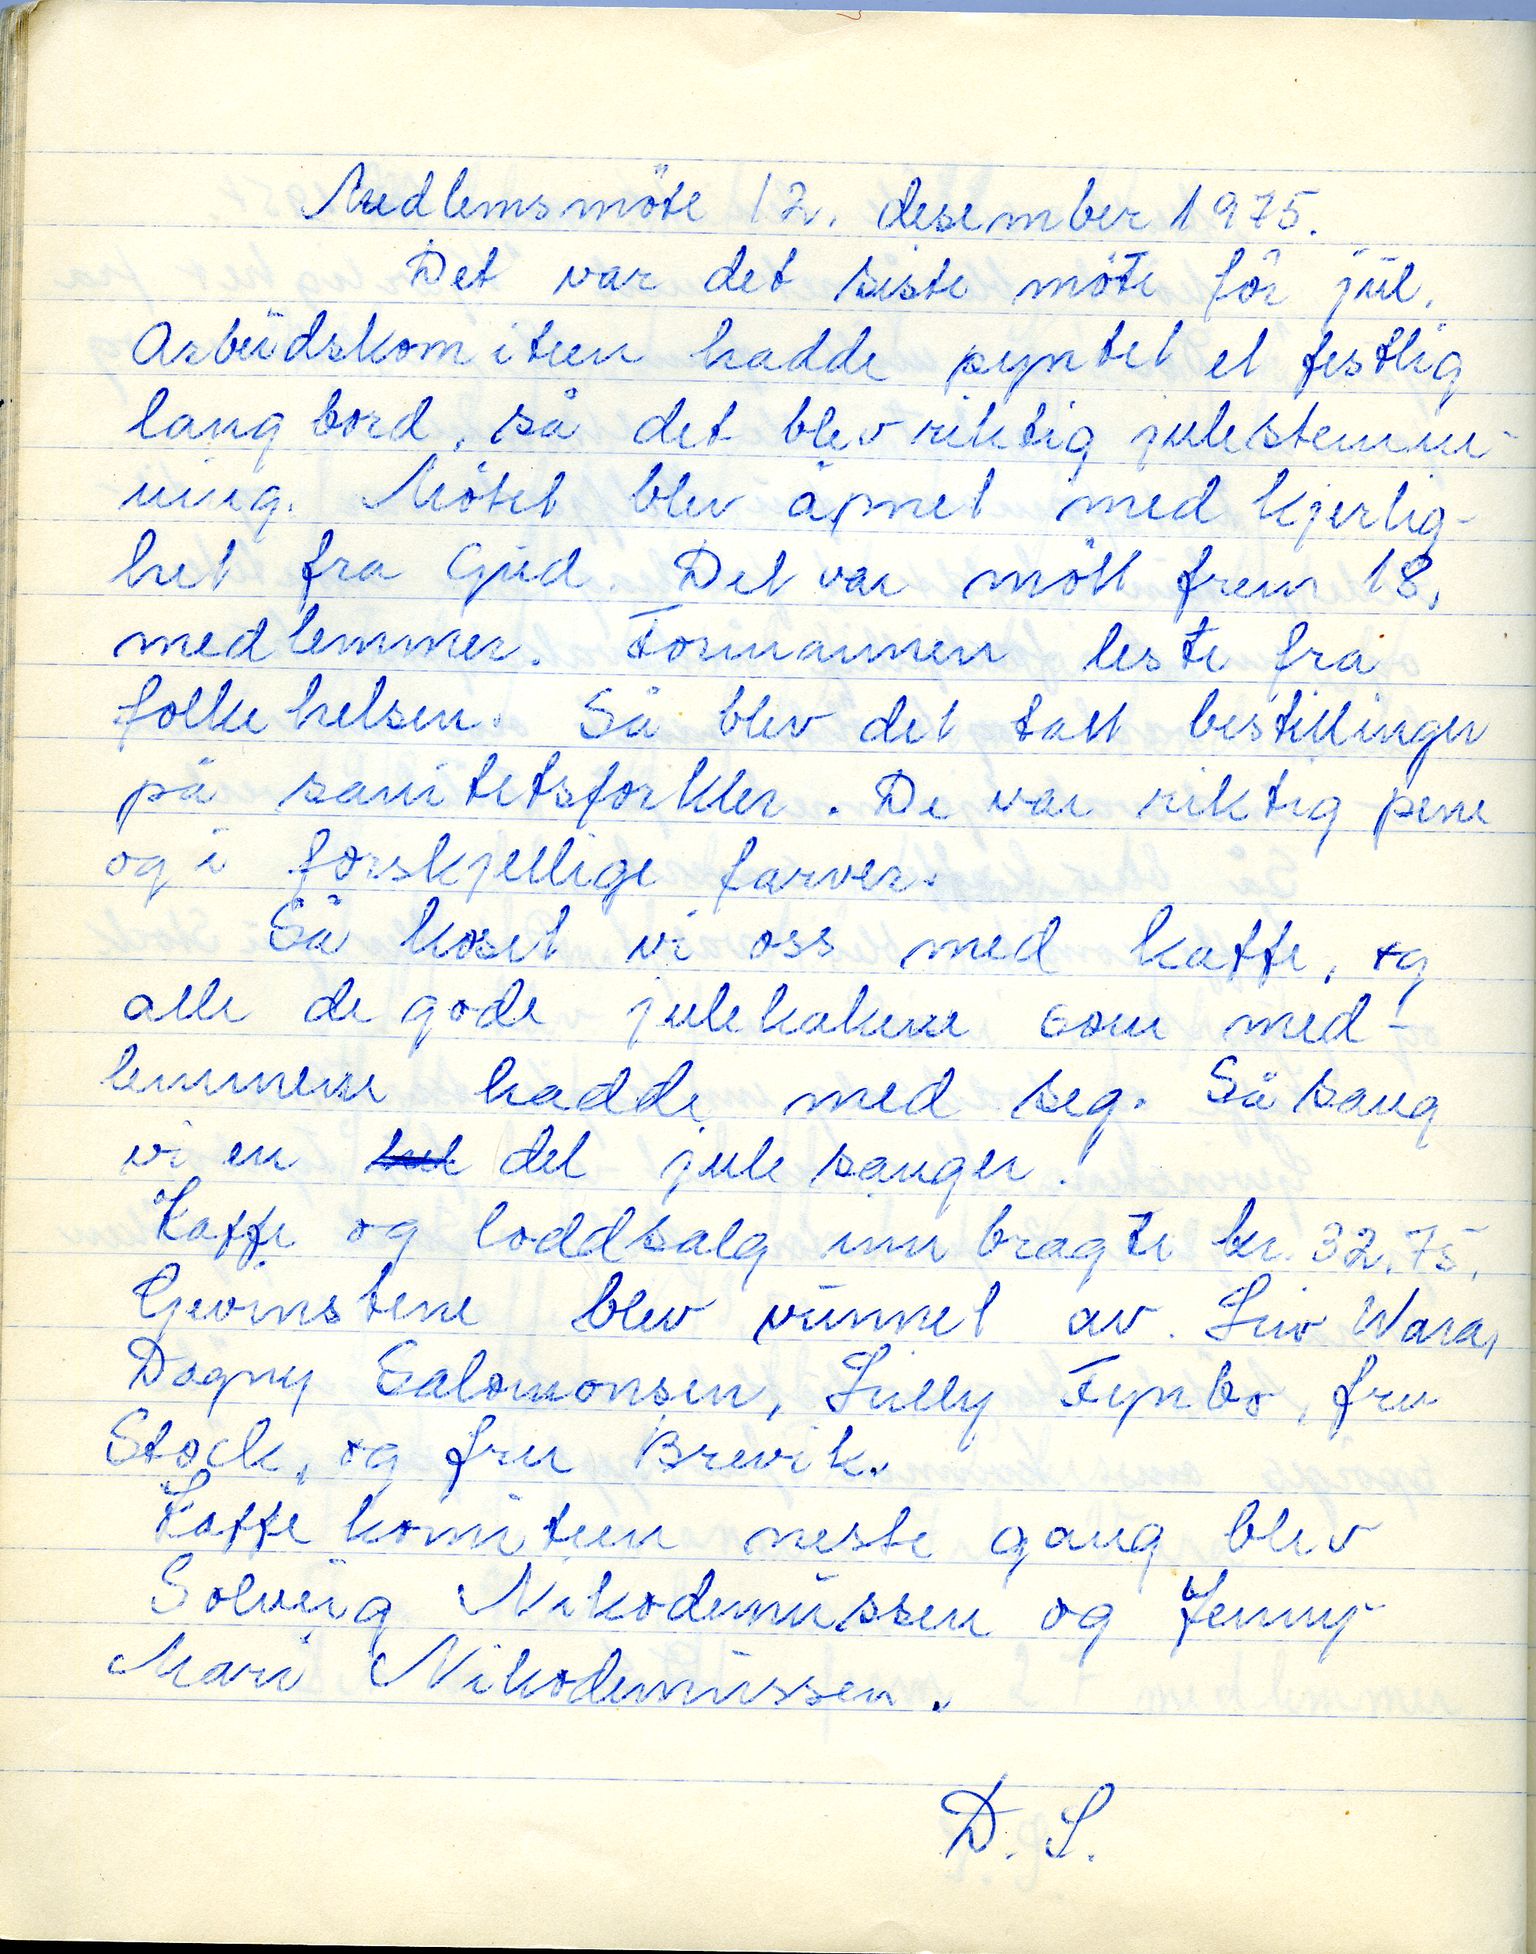 Medlemsmöte 12. desember 1975.
Det var det siste möte för jul.
Arbeidskomiteen hadde pyntet et festlig
langbord, så det blev riktig julestemm-
ning. Mötet blev åpnet med kjerlig-
het fra Gud. Det var mött frem 18.
medlemmer. Formannen leste fra
folkehelsen. Så blev det tatt bestillinger
på sanitetsforkler. De var riktig pene
og i forskjellige farver.
Så koset vi oss med kaffe, og
alle de gode julekakene som med-
lemmene hadde med seg. Så sang
vi en del julesanger.
Kaffe og loddsalg innbragte kr. 32.75.
Gevinstene blev vunnet av. Liv Wara,
Dagny Salomonsen, Lilly Fynbo, fru
Stock, og fru Brevik.
Kaffekomiteen neste gang blev
Solveig Nikodemussen og Jenny
Mari Nikodemussen.
D. S.